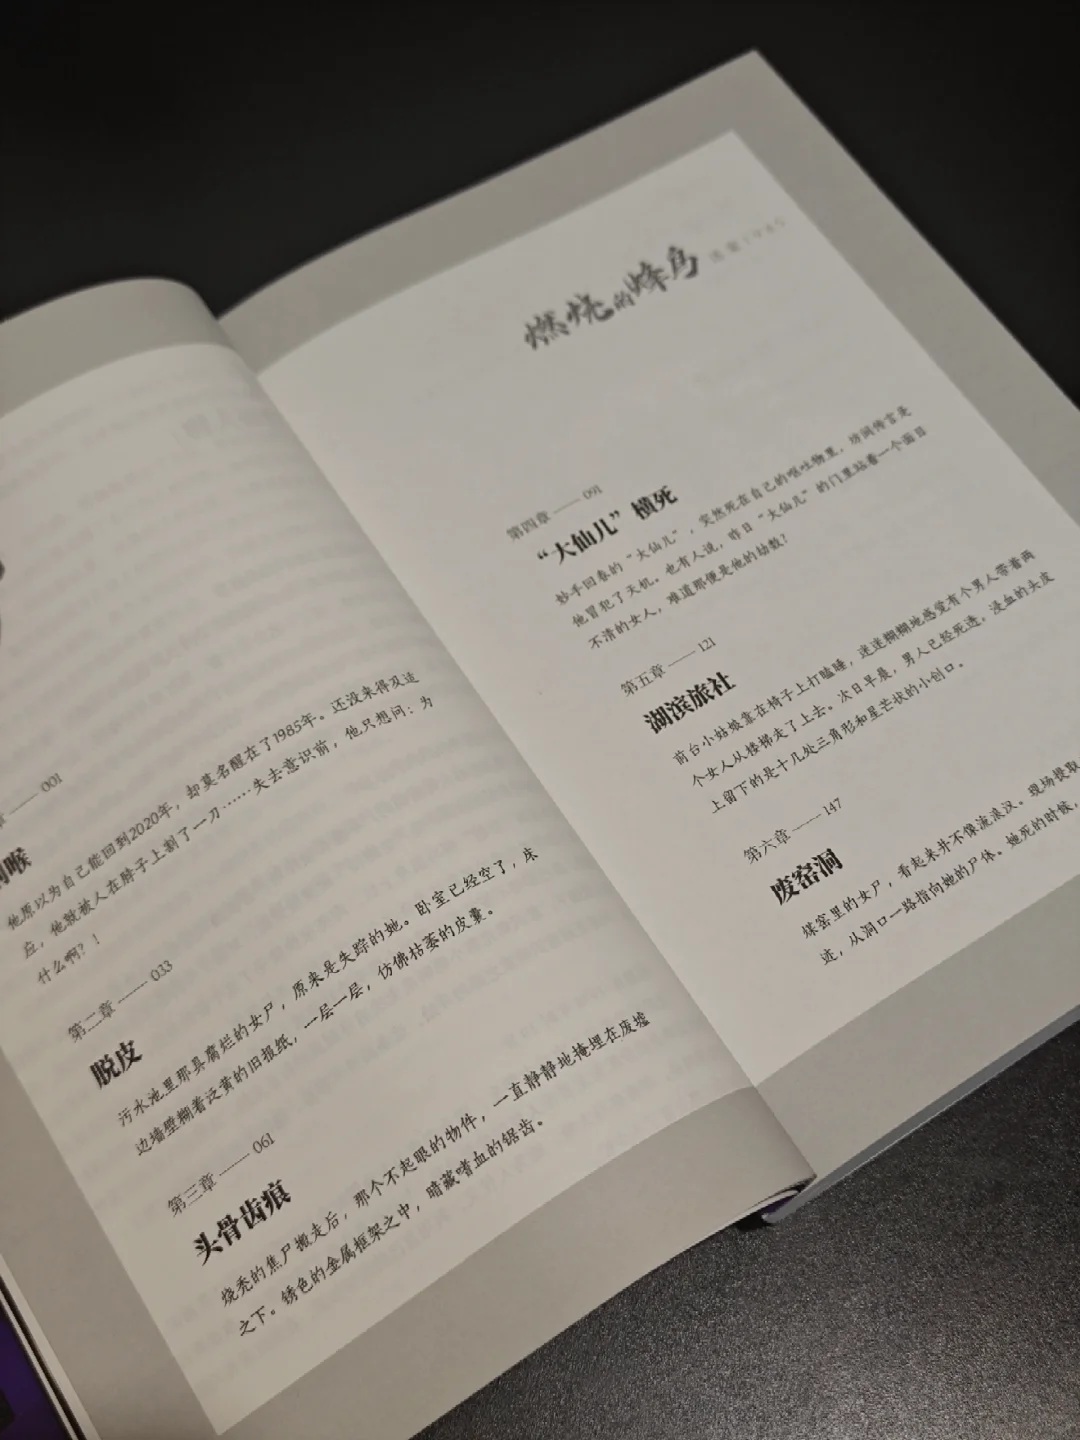 001
喉
他原以为自己能回到2020年，却莫名醒在了1985年。还没来得及适
应，他就被人在脖子上割了一刀……失去意识前，他只想问：为
什么啊？！
第二章——033
脱皮
污水池里那具腐烂的女尸，原来是失踪的她。卧室已经空了，床
边墙壁糊着泛黄的旧报纸，一层一层，仿佛枯萎的皮囊。
第三章——061
头骨齿痕
烧秃的焦尸搬走后，那个不起眼的物件，一直静静地掩埋在废墟
之下。锈色的金属框架之中，暗藏嗜血的锯齿。
燃烧的蜂鸟
1985
第四章——091
“大仙儿”横死
妙手回春的“大仙儿”，突然死在自己的呕吐物里，坊间传言是
他冒犯了天机。也有人说，昨日“大仙儿”的门里站着一个面目
不清的女人，难道那便是他的劫数？
第五章——121
湖滨旅社
前台小姑娘靠在椅子上打瞌睡，迷迷糊糊地感觉有个男人带着两
个女人从楼梯走了上去。次日早晨，男人已经死透，浸血的头皮
上留下的是十几处三角形和星芒状的小创口。
第六章——147
废窑洞
煤窑里的女尸，看起来并不像流浪汉。现场提取
迹，从洞口一路指向她的尸体。她死的时候，